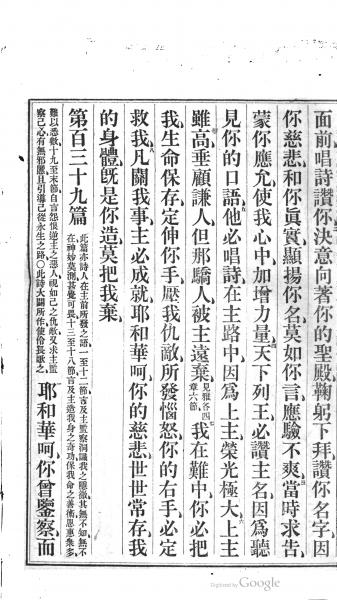 面前唱詩讚你決意向著你的聖殿鞠躬下拜讚你名字因
你慈悲和你眞實顯揚你名莫如你言應驗不爽當時求告
蒙你應允使我心中加增力量天下列王必讚主名因爲聽
見你的口語他必唱詩在主路中因爲上主榮光極大上主
雖高垂顧謙人但那驕人被主遠棄見雅各四章六節我在難中你必把
我生命保存定伸你手壓我仇敵所發惱怒你的右手必定
救我凡關我事主必成就耶和華呵你的慈悲世世常存我
的身體旣是你造莫把我棄
第百三十九篇 此篇亦詩人在主前所發之語一至十二節言及主監察洞識我之隱微其無不知無不
在神妙莫測甚覺可畏十三至十八節言及主造我身之奇功保我命之善術恩惠衆多
難以悉數十九至末節自言怨恨逆主之惡人視如己之仇敵又求主監
察己心有無邪慝且引導己從永生之路○此詩大闢所作使伶長歌之
耶和華呵你曾鑒察而
Digitized by Google